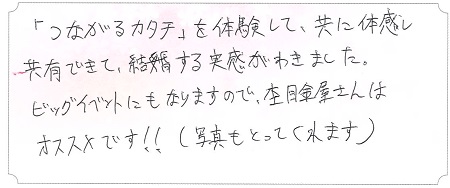 「つながるカタチ」を体験して、共に体感し
共有できて、結婚する実感がわきました。
ビッグイベントにもなりますので、杢目金屋さんは
オススメです!!(写真もとってくれます)